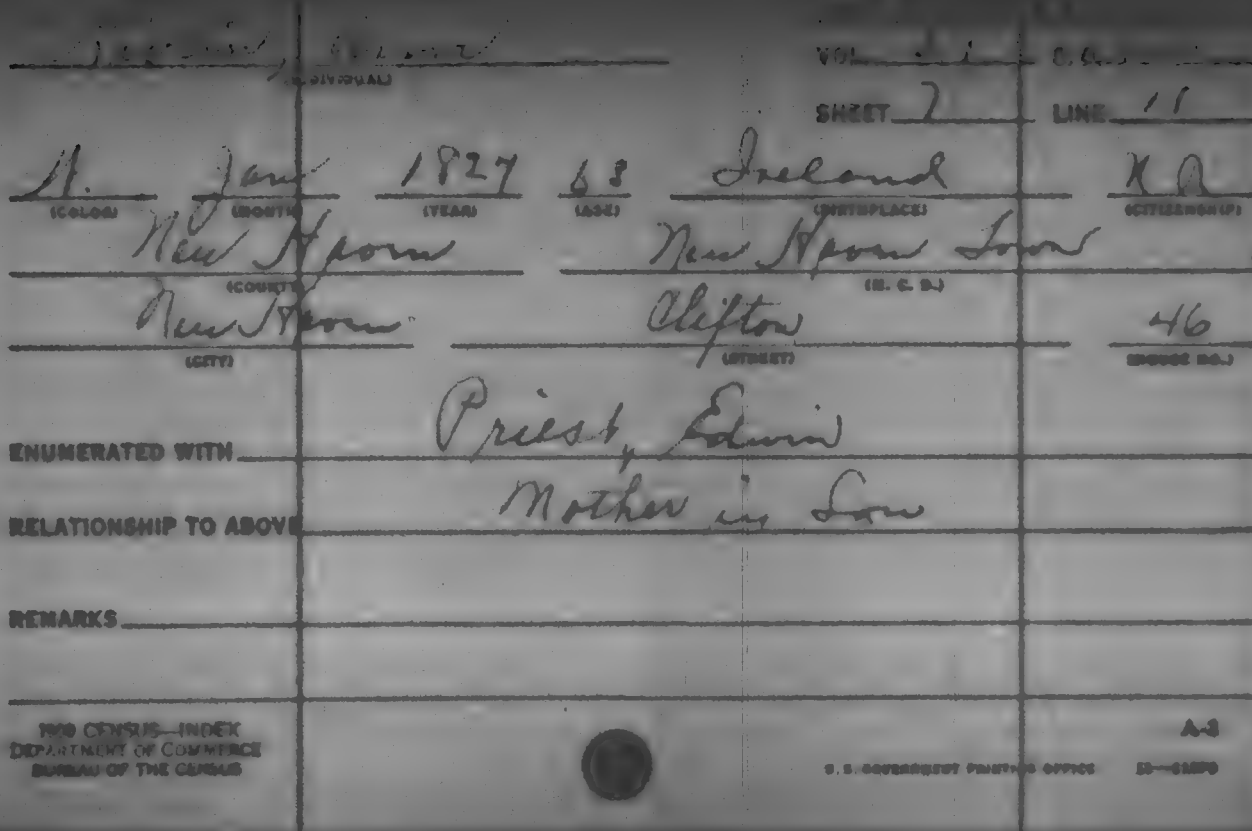 (INDIVIDUAL)
VOL. E.D.
SHEET 7 LINE 11
W. Jan 1827 63 Ireland N A
(COLOR) (MONTH) (YEAR) (AGE) (BIRTHPLACE) (CITIZENSHIP)
New Haven New Haven Town
(COUNTY) (M. C. D.)
New Haven Clifton 46
(CITY) (STREET) (HOUSE NO.)
ENUMERATED WITH Priest, Edwin
RELATIONSHIP TO ABOVE Mother in Law
REMARKS
1900 CENSUS—INDEX
DEPARTMENT OF COMMERCE
BUREAU OF THE CENSUS
A-3
U. S. GOVERNMENT PRINTING OFFICE